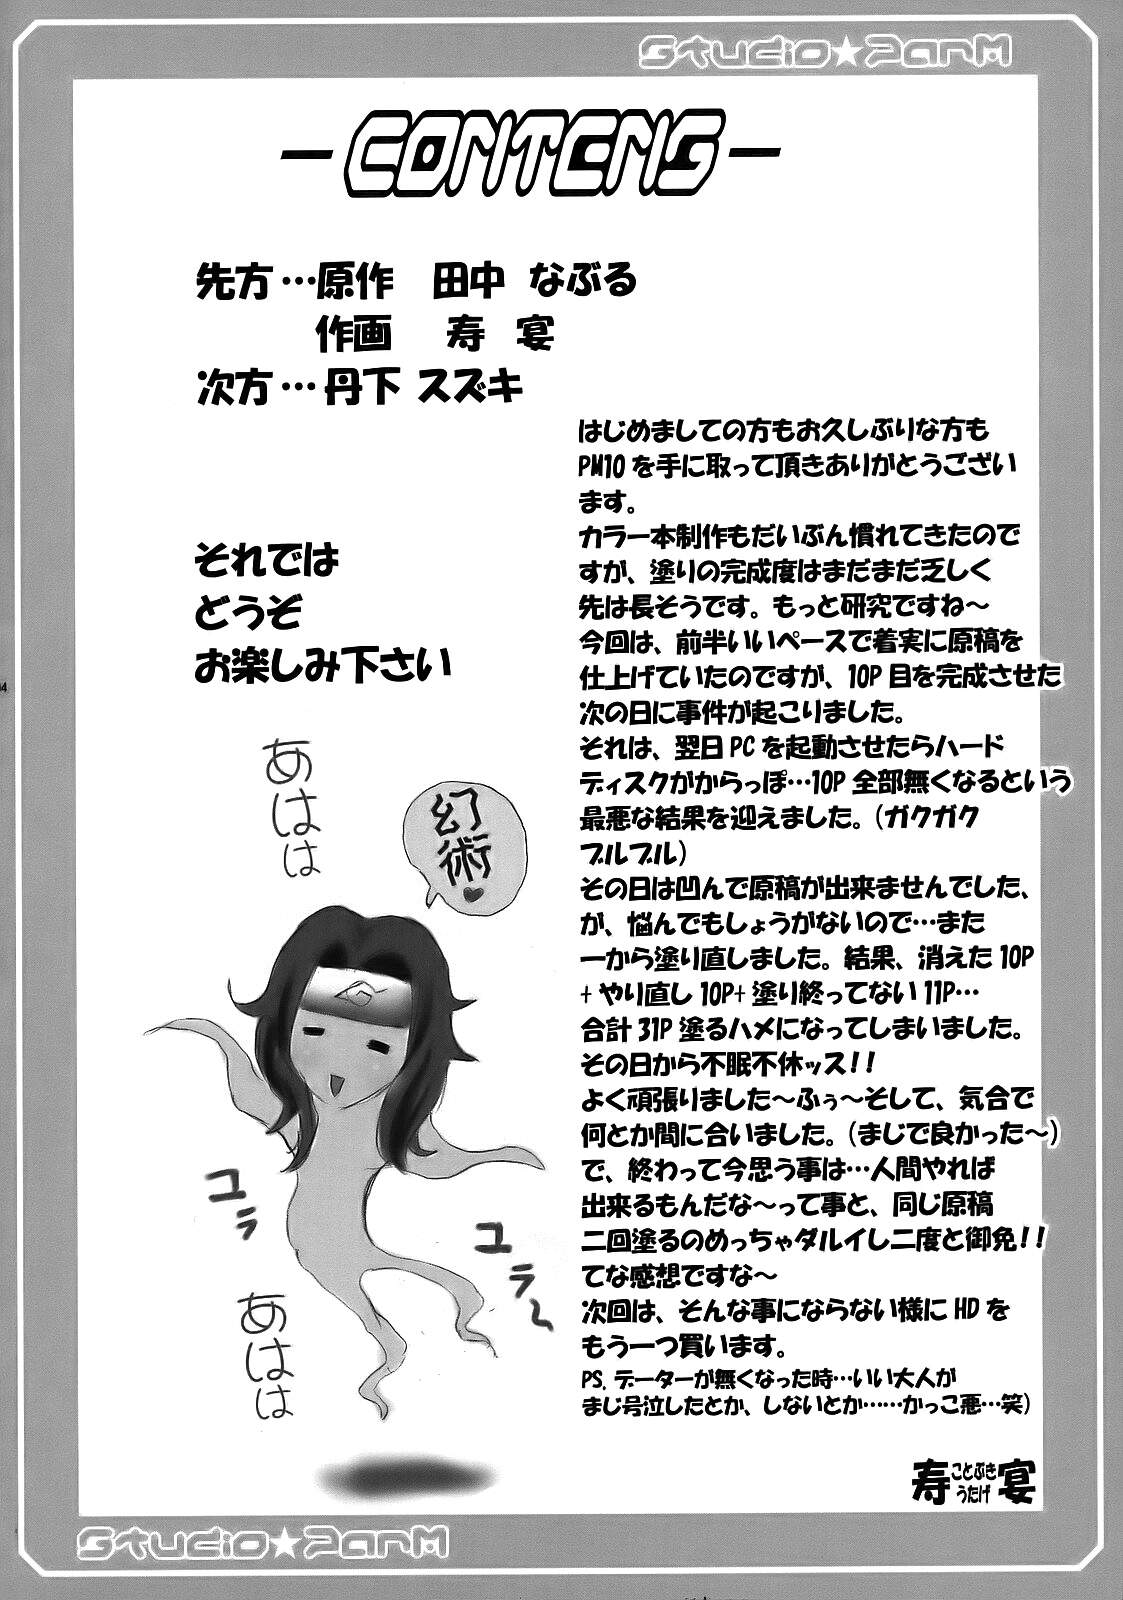 Studio★ParM
-CONTENS-
先方…原作 田中 なぶる
作画 寿 宴
次方…丹下 スズキ
はじめましての方もお久しぶりな方も
PM10を手に取って頂きありがとうござい
ます。
カラー本制作もだいぶん慣れてきたので
すが、塗りの完成度はまだまだ乏しく
先は長そうです。もっと研究ですね〜
今回は、前半いいペースで着実に原稿を
仕上げていたのですが、10P目を完成させた
次の日に事件が起こりました。
それは、翌日PCを起動させたらハード
ディスクがからっぽ…10P全部無くなるという
最悪な結果を迎えました。(ガクガク
ブルブル)
その日は凹んで原稿が出来ませんでした、
が、悩んでもしょうがないので…また
一から塗り直しました。結果、消えた10P
+やり直し10P+塗り終ってない11P…
合計31P塗るハメになってしまいました。
その日から不眠不休ッス!!
よく頑張りました〜ふぅ〜そして、気合で
何とか間に合いました。(まじで良かった〜)
で、終わって今思う事は…人間やれば
出来るもんだな〜って事と、同じ原稿
二回塗るのめっちゃダルイし二度と御免!!
てな感想ですな〜
次回は、そんな事にならない様にHDを
もう一つ買います。
PS.データーが無くなった時…いい大人が
まじ号泣したとか、しないとか……かっこ悪…笑)
寿 ことぶき
うたげ 宴
それでは
どうぞ
お楽しみ下さい
あはは
幻術♥
ユラ
ユラ〜
あはは
Studio★ParM